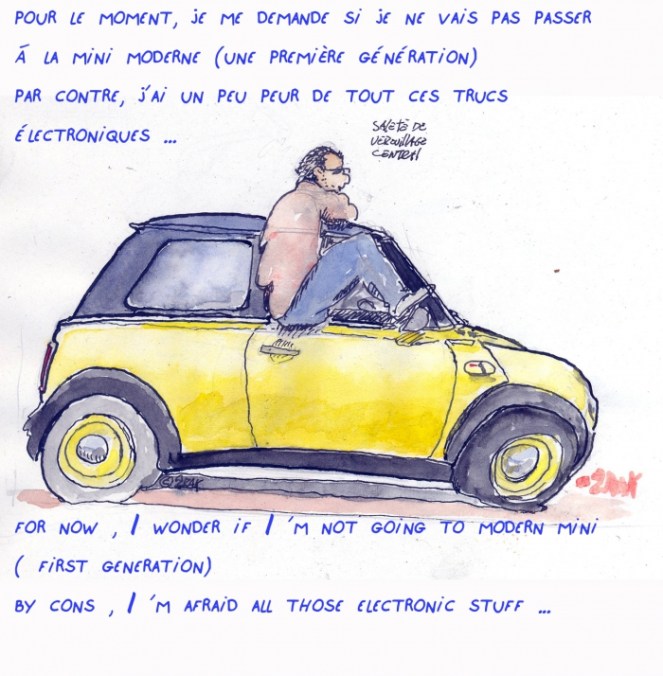 POUR LE MOMENT, JE ME DEMANDE SI JE NE VAIS PAS PASSER
Á LA MINI MODERNE (UNE PREMIÈRE GÉNÉRATION)
PAR CONTRE, J'AI UN PEU PEUR DE TOUT CES TRUCS
ÉLECTRONIQUES ...
SALETÉ DE
VEROUILLAGE
CENTRAL
FOR NOW , I WONDER IF I 'M NOT GOING TO MODERN MINI
( FIRST GENERATION)
BY CONS , I 'M AFRAID ALL THOSE ELECTRONIC STUFF ...